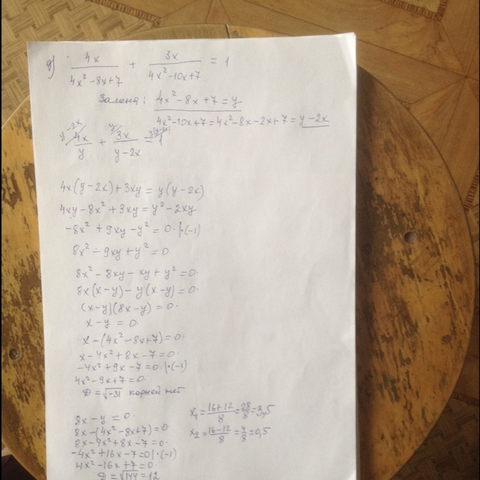 д) 4x/(4x²-8x+7) + 3x/(4x²-10x+7) = 1
Замена: 4x²-8x+7=y
4x²-10x+7=4x²-8x-2x+7=y-2x
4x/y + 3x/(y-2x) = 1
4x(y-2x)+3xy=y(y-2x)
4xy-8x²+3xy=y²-2xy
-8x²+9xy-y²=0 |·(-1)
8x²-9xy+y²=0
8x²-8xy-xy+y²=0
8x(x-y)-y(x-y)=0
(x-y)(8x-y)=0
x-y=0
x-(4x²-8x+7)=0
x-4x²+8x-7=0
-4x²+9x-7=0 |·(-1)
4x²-9x+7=0
D=√-31 корней нет
8x-y=0
8x-(4x²-8x+7)=0
8x-4x²+8x-7=0
-4x²+16x-7=0 |·(-1)
4x²-16x+7=0
D=√144=12
x₁=(16+12)/8=28/8=3,5
x₂=(16-12)/8=4/8=0,5